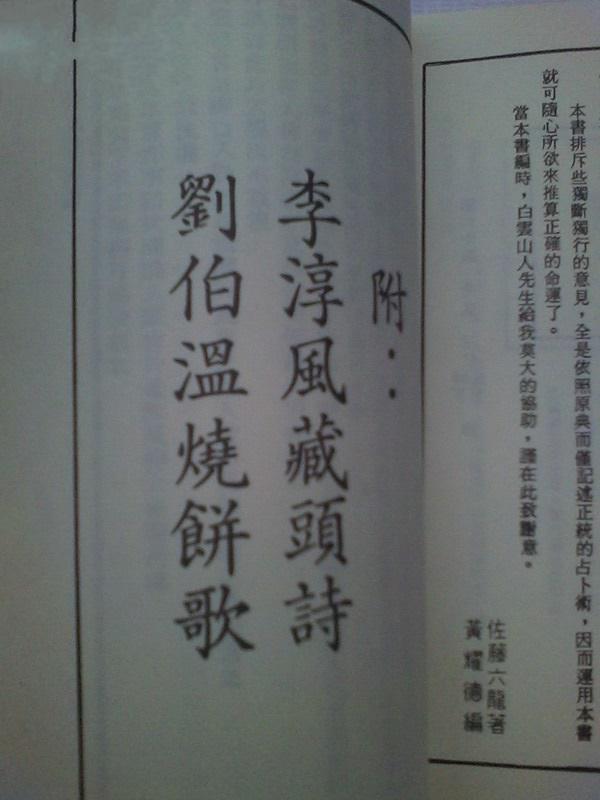 本書排斥些獨斷獨行的意見，全是依照原典而僅記述正統的占卜術，因而運用本書
就可隨心所欲來推算正確的命運了。
當本書編時，白雲山人先生給我莫大的協助，謹在此致謝意。
佐藤六龍著
黃耀德編
附：
李淳風藏頭詩
劉伯溫燒餅歌